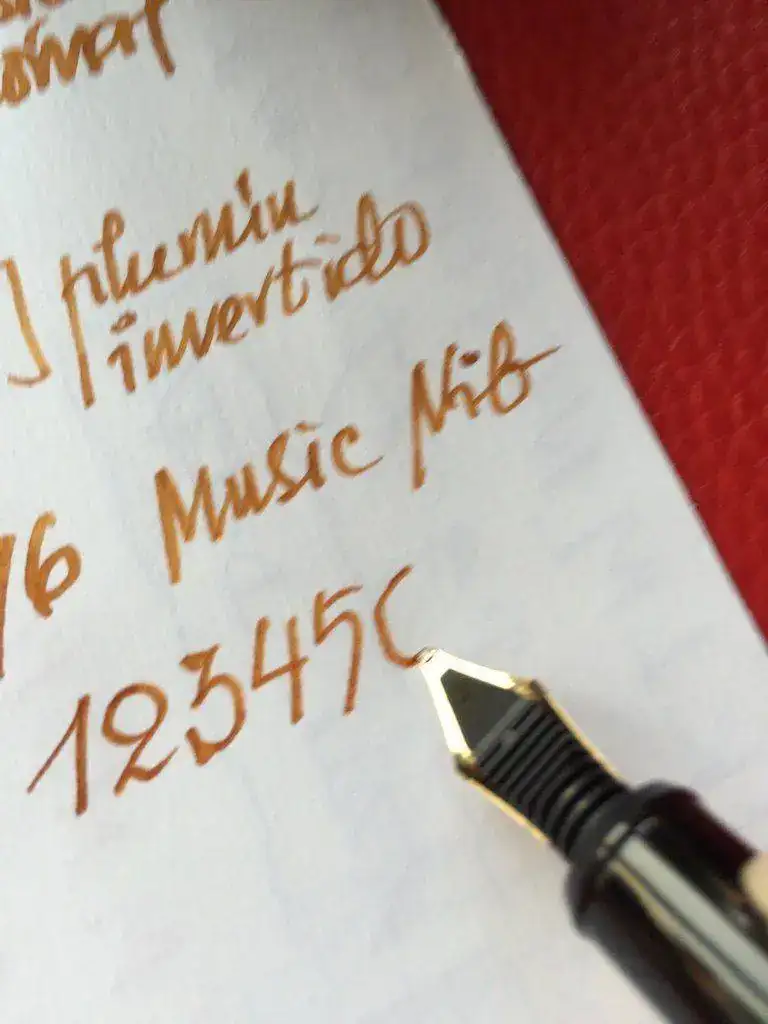 plumin
invertido
6 Music Nib
12345